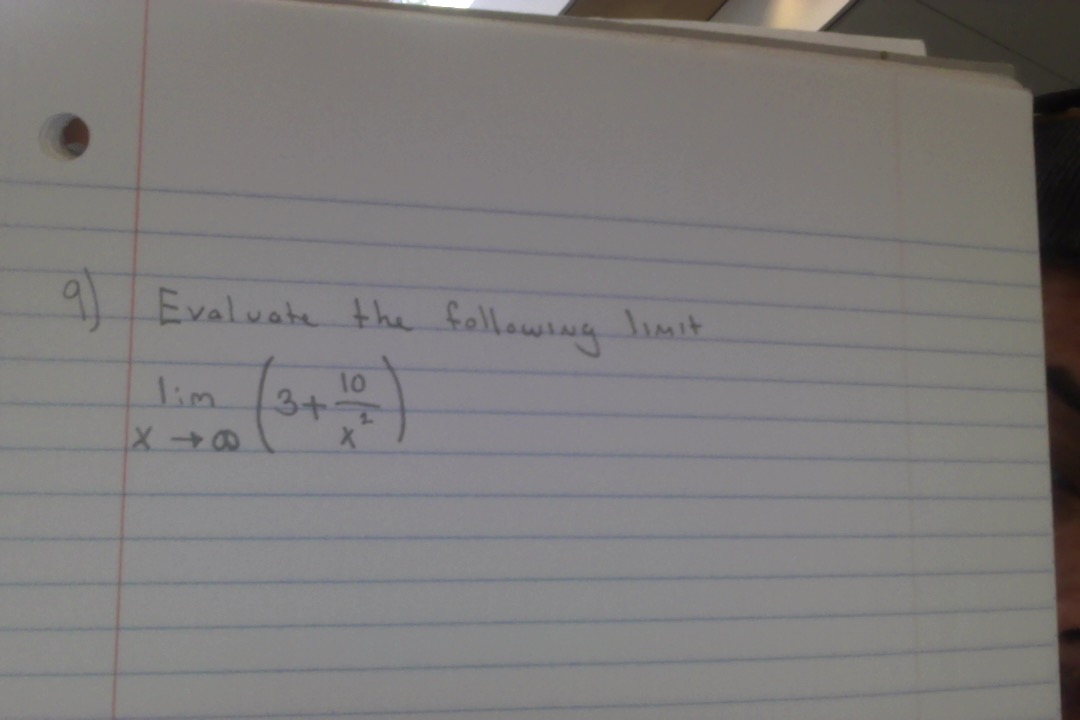 9) Evaluate the following limit
lim x → ∞ (3 + 10/x²)